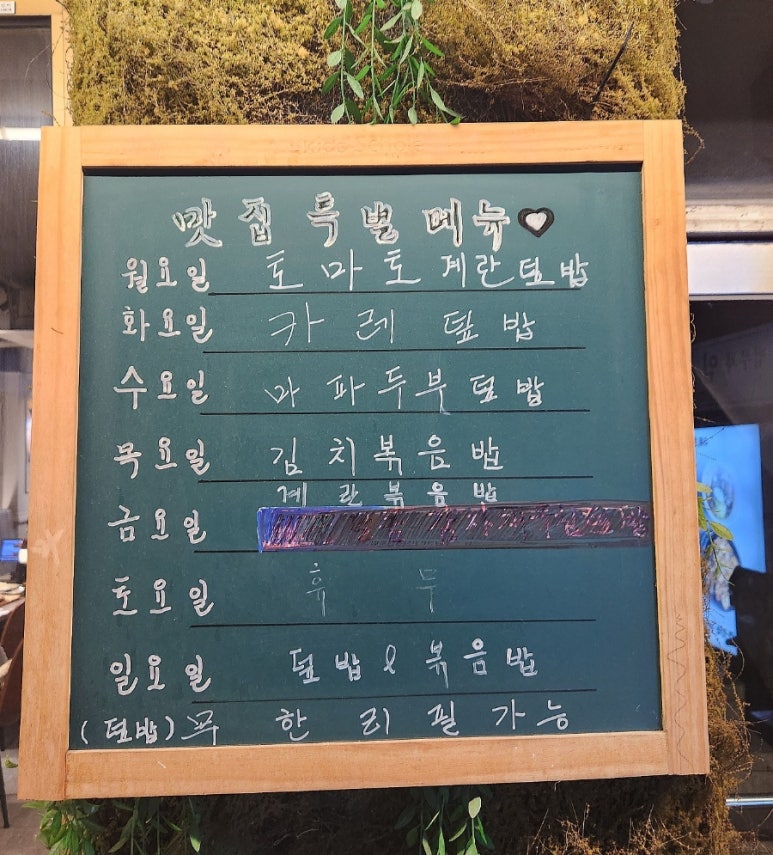 맛집 특별 메뉴
월요일 토마토계란덮밥
화요일 카레 덮밥
수요일 마파두부덮밥
목요일 김치볶음밥
계란볶음밥
금요일
토요일 휴무
일요일 덮밥 & 볶음밥
(덮밥) 무한 리필 가능